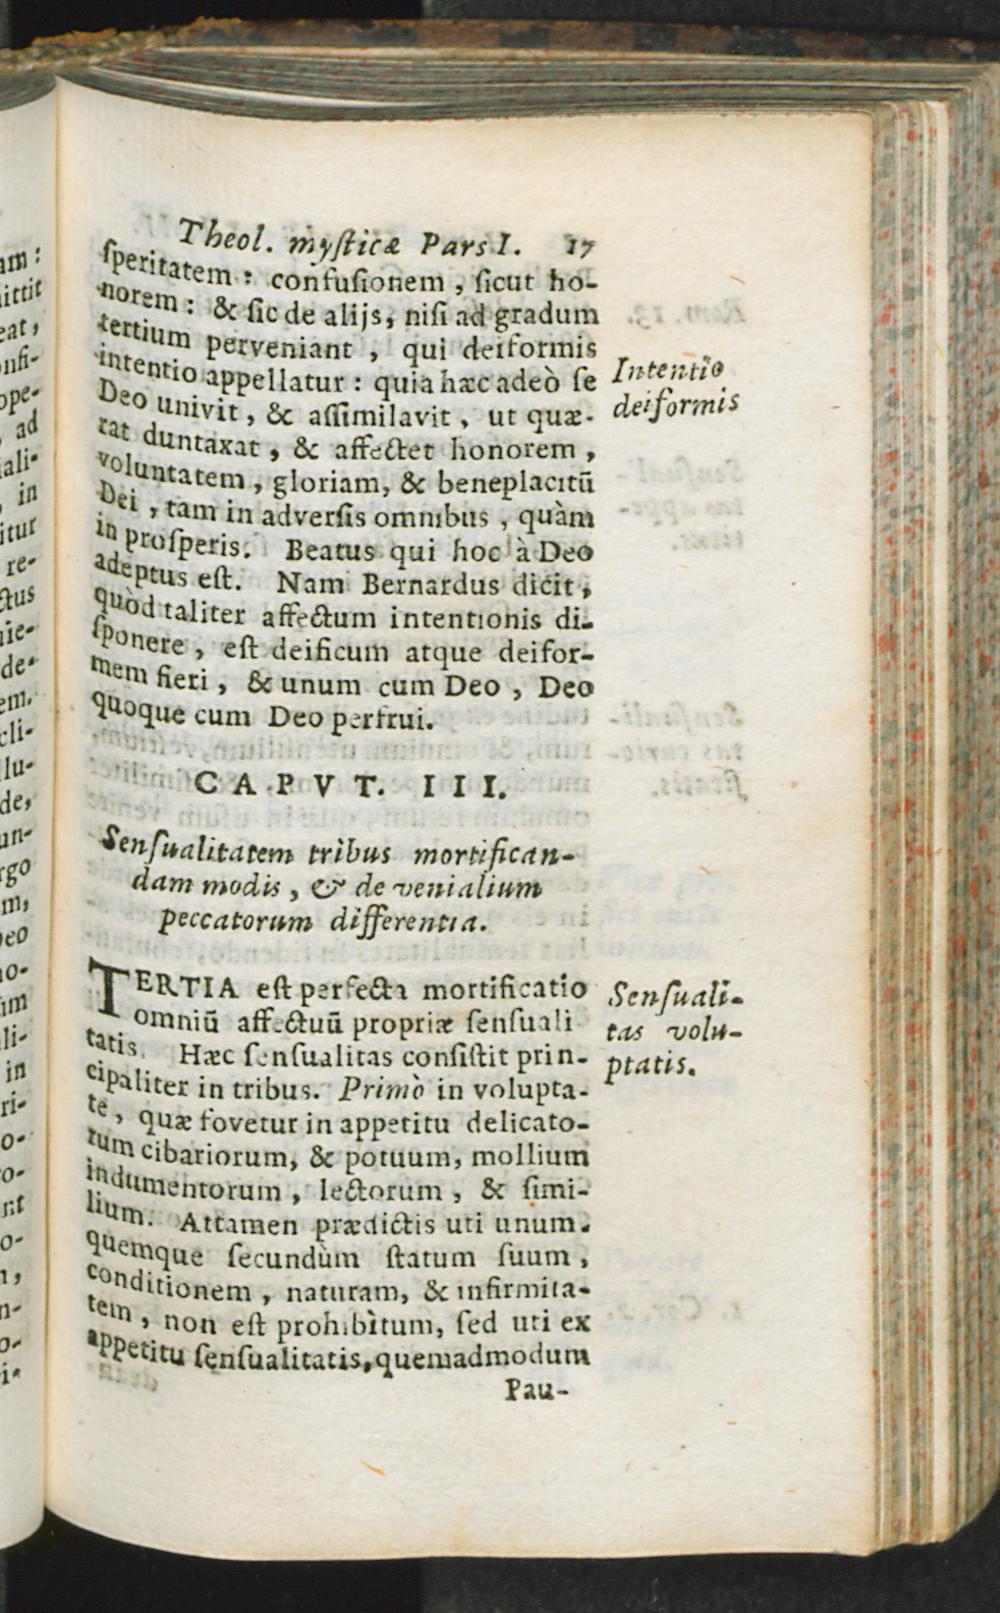 Theol. mysticæ Pars I. 17
speritatem : confusionem, sicut ho-
norem : & sic de alijs, nisi ad gradum
tertium perveniant, qui deiformis
intentio appellatur : quia hæc adeò se
Deo univit, & assimilavit, ut quæ-
rat duntaxat, & affectet honorem,
voluntatem, gloriam, & beneplacitũ
Dei, tam in adversis omnibus, quàm
in prosperis. Beatus qui hoc à Deo
adeptus est. Nam Bernardus dicit,
quòd taliter affectum intentionis di-
sponere, est deificum atque deifor-
mem fieri, & unum cum Deo, Deo
quoque cum Deo perfrui.
Intentio
deiformis
CAPVT. III.
Sensualitatem tribus mortifican-
dam modis, & de venialium
peccatorum differentia.
TERTIA est perfecta mortificatio
omniũ affectuũ propriæ sensuali
tatis. Hæc sensualitas consistit prin-
cipaliter in tribus. Primò in volupta-
te, quæ fovetur in appetitu delicato-
rum cibariorum, & potuum, mollium
indumentorum, lectorum, & simi-
lium. Attamen prædictis uti unum-
quemque secundùm statum suum,
conditionem, naturam, & infirmita-
tem, non est prohibìtum, sed uti ex
appetitu sensualitatis, quemadmodum
Pau-
Sensuali-
tas volu-
ptatis.